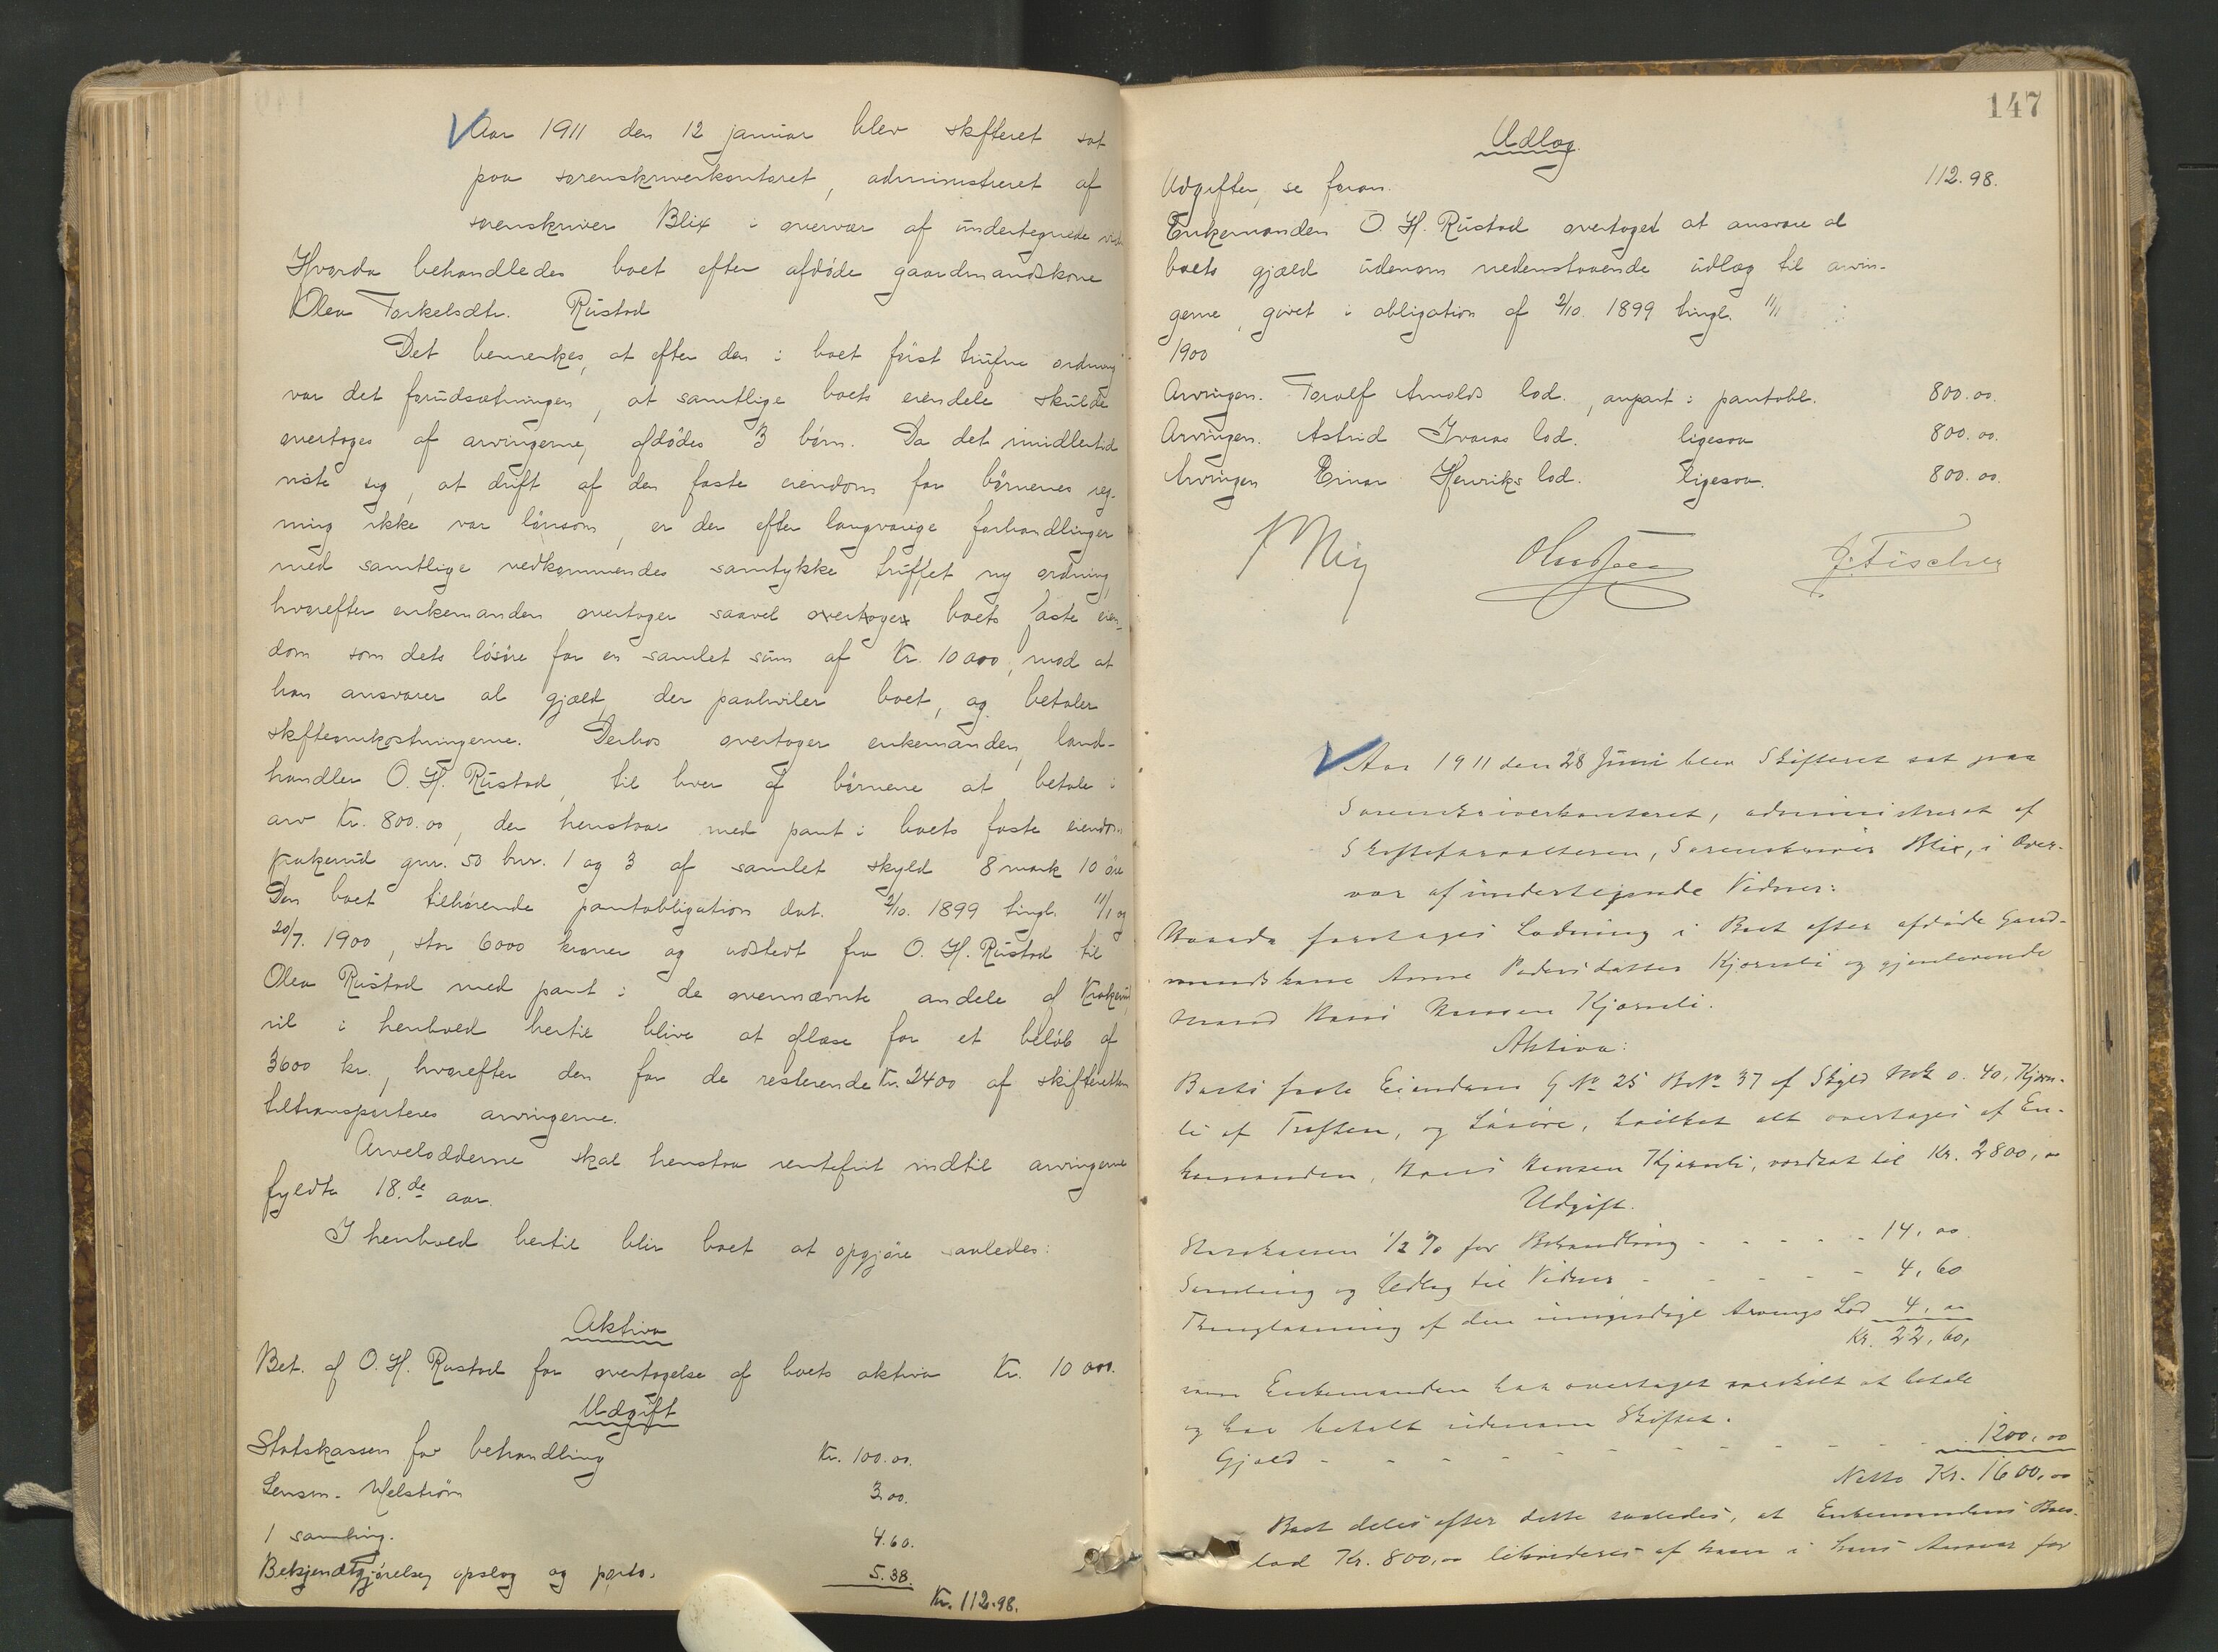 Aar 1911 den 12 januar blev skifteret sat
paa sorenskriverkontoret, administreret af
sorenskriver Blix i overvær af undertegnede
Hvorda behandledes boet efter afdøde gaardmandskone
Olea Torkelsdtr. Rustad
Det bemerkes, at efter den i boet først trufne ordning
var det forudsætningen, at samtlige boets eiendele skulde
overtages af arvingerne, afdødes 3 børn. Da det imidlertid
viste sig, at drift af den faste eiendom for børnenes reg-
ning ikke var lønsom, er der efter langvarige forhandlinger
med samtlige vedkommendes samtykke truffet ny ordning,
hvorefter enkemanden overtager saavel overtager boets faste eien-
dom som dets løsøre for en samlet sum af Kr. 10000, mod at
han ansvarer al gjæld, der paahviler boet, og betaler
skifteomkostningerne. Derhos overtager enkemanden, land-
handler O. H. Rustad, til hver af børnene at betale i
arv Kr. 800.00, der henstaar med pant i boets faste eiendom
Krokerud gnr. 50 bnr. 1 og 3 af samlet skyld 8 mark 10 øre
Den boet tilhørende pantobligation dat. 2/10. 1899 tingl. 11/1 og
20/7. 1900, stor 6000 kroner og udstedt fra O. H. Rustad til
Olea Rustad med pant i de ovennævnte andele af Krokerud
vil i henhold hertil blive at aflæse for et beløb af
3600 kr., hvorefter den for de resterende Kr. 2400 af skifteretten
tiltransporteres arvingerne.
Arvelodderne skal henstaa rentefrit indtil arvingerne
fyldte 18.de aar.
I henhold hertil blir boet at opgjøre saaledes:
Aktiva
Bet. af O. H. Rustad for overtagelse af boets aktiva Kr. 10 000.
Udgift
Statskassen for behandling Kr. 100.00.
Lensm. Melstrøm 3.00.
1 samling. 4.60.
Bekjendtgjørelse, opslag og porto. 5.38.
Kr. 112.98.
147
Udlæg.
Udgifter, se foran. 112.98.
Enkemanden O. H. Rustad overtaget at ansvare al
boets gjæld udenom nedenstaaende udlæg til arvin-
gerne, givet i obligation af 2/10. 1899 tingl. 11/1
1900
Arvingen. Toralf Arnolds lod., anpart i pantobl. 800.00.
Arvingen. Astrid Ivaras lod. ligesaa 800.00.
Arvingen Einar Henriks lod. ligesaa. 800.00.
J. Fischer
Aar 1911 den 28 Juni blev Skifteret sat paa
Sorenskriverkontoret, administreret af
Skifteforvalteren, Sorenskriver Blix, i Over-
vær af undertegnede Vidner:
Hvorda foretages Lodning i Boet efter afdøde Gaard-
mandskone Anne Pedersdatter Kjørnli og gjenlevende
Mand Hans Hansen Kjørnli.
Aktiva:
Boets faste Eiendom G No 25 B No 37 af Skyld Mk 0.40, Kjørn-
li af Treften, og Løsøre, hvilket alt overtages af En-
kemanden, Hans Hansen Kjørnli, værdsat til Kr. 2800,00
Udgift.
Statskassen 1/2 % for Behandling - - - - - 14,00.
Samling og Udlæg til Vidner - - - - - 4,60
Thinglæsning af den umyndige Arvings Lod 4,00
Kr. 22,60,
som Enkemanden har overtaget særskilt at betale
og har betalt udenom Skiftet.
Gjæld - - - - - - - - - - 1200,00
Netto Kr. 1600,00
Boet deles efter dette saaledes, at Enkemandens Boes-
lod Kr. 800,00 likvideres af ham i hans Ansvar for